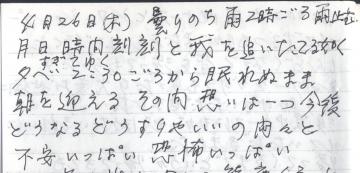 4月26日(木) 曇りのち雨2時ごろ雨止む
月日時内刻刻と我を追いたてる如く
すぎてゆく
夕べ2:30ごろから眠れぬまま
朝を迎える その間 想いは一つ今後
どうなるどうすりゃいいの悶々と
不安いっぱい 恐怖いっぱい